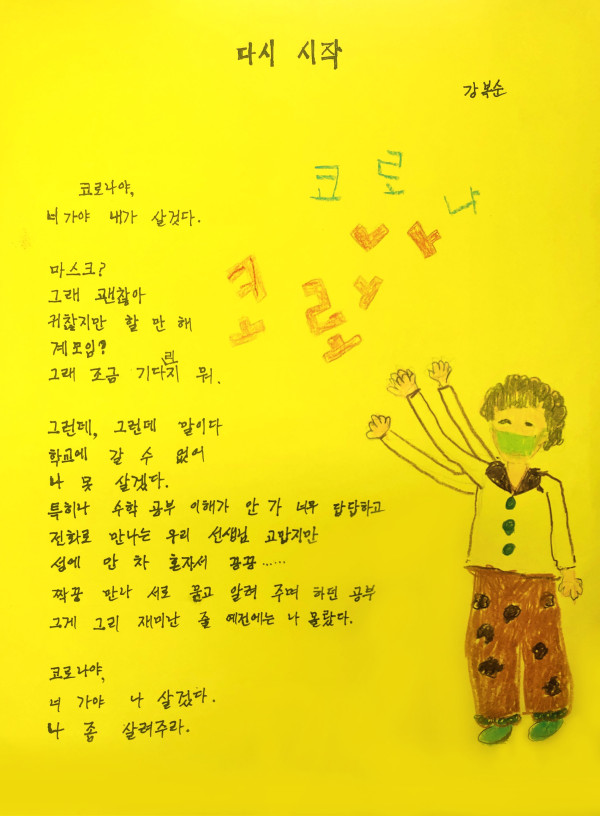 다시 시작
강복순
코로나
코로나
코로나야,
너 가야 내가 살것다.
마스크?
그래 괜찮아
귀찮지만 할 만 해
계모임?
그래 조금 기다리지 뭐.
그런데, 그런데 말이다
학교에 갈 수 없어
나 못 살겠다.
특히나 수학 공부 이해가 안 가 너무 답답하고
전화로 만나는 우리 선생님 고맙지만
성에 안 차 혼자서 끙끙……
짝꿍 만나 서로 묻고 알려 주며 하던 공부
그게 그리 재미난 줄 예전에는 나 몰랐다.
코로나야,
너 가야 나 살겄다.
나 좀 살려주라.